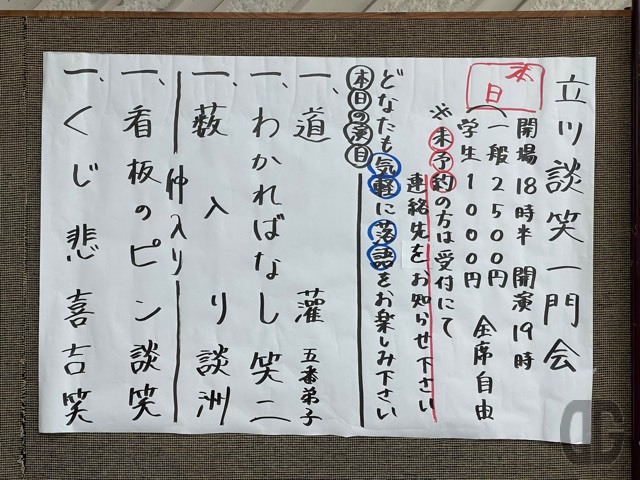 立川談笑一門会
本日
開場18時半 開演19時
一般2500円
学生1000円 全席自由
※未予約の方は受付にて
連絡先をお知らせ下さい
どなたも気軽に落語をお楽しみ下さい
本日の演目
一、道灌 五番弟子
一、わかればなし 笑二
一、薮入り 談洲
仲入り
一、看板のピン 談笑
一、くじ悲喜 吉笑
DG